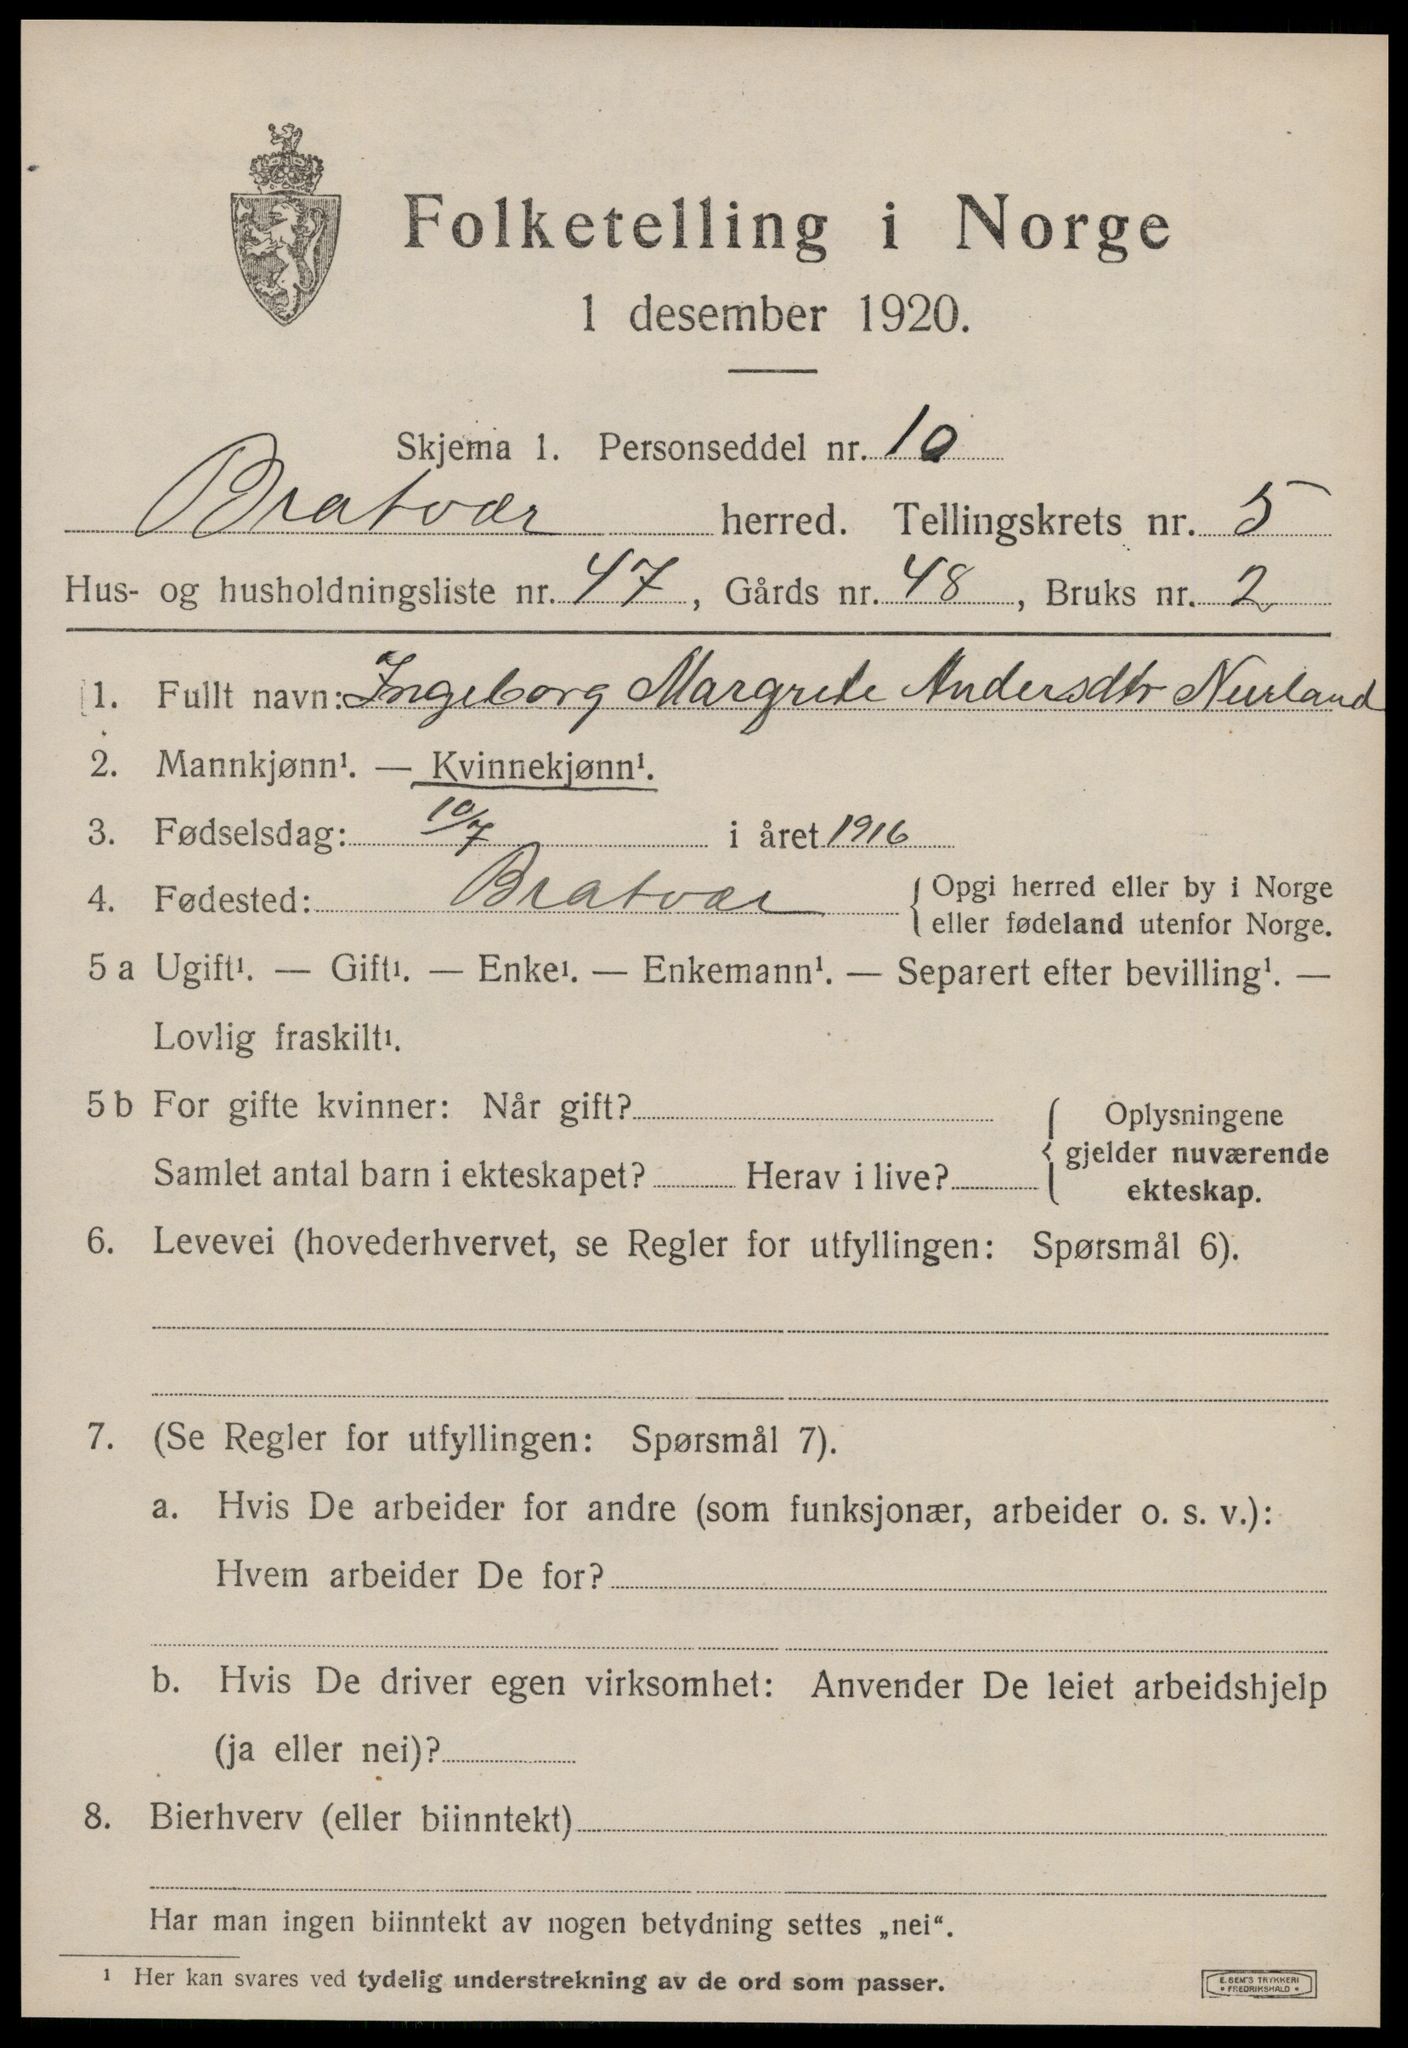 Folketelling i Norge
1 desember 1920.
Skjema 1. Personseddel nr. 10
Bratvær herred. Tellingskrets nr. 5
Hus- og husholdningsliste nr. 47, Gårds nr. 48, Bruks nr. 2
1. Fullt navn: Ingeborg Margrete Andersdtr Neerland
2. Mannkjønn¹. — Kvinnekjønn¹.
3. Fødselsdag: 10/7 i året 1916
4. Fødested: Bratvær { Opgi herred eller by i Norge
eller fødeland utenfor Norge.
5 a Ugift¹. — Gift¹. — Enke¹. — Enkemann¹. — Separert efter bevilling¹. —
Lovlig fraskilt¹.
5 b For gifte kvinner: Når gift?
Samlet antal barn i ekteskapet? Herav i live?
{ Oplysningene
gjelder nuværende
ekteskap.
6. Levevei (hovederhvervet, se Regler for utfyllingen: Spørsmål 6).
7. (Se Regler for utfyllingen: Spørsmål 7).
a. Hvis De arbeider for andre (som funksjonær, arbeider o. s. v.):
Hvem arbeider De for?
b. Hvis De driver egen virksomhet: Anvender De leiet arbeidshjelp
(ja eller nei)?
8. Bierhverv (eller biinntekt)
Har man ingen biinntekt av nogen betydning settes „nei“.
¹ Her kan svares ved tydelig understrekning av de ord som passer.
E. SEM'S TRYKKERI
• FREDRIKSHALD •